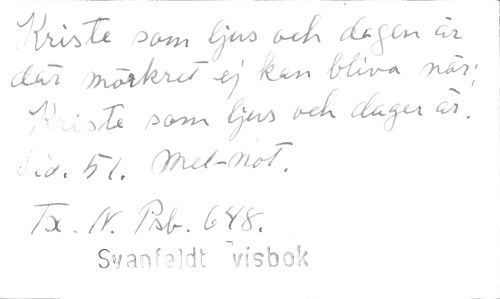 Kriste som ljus och dagen är
där mörkret ej kan bliva när;
Kriste som ljus och dager är.
Sid. 51. Mel-not.
Tx. N. Psb. 648.
Svanfeldt visbok